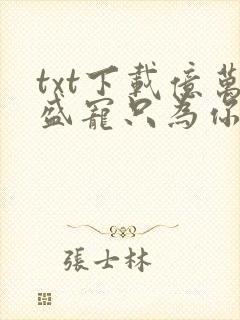 txt下載億萬
盛寵只為你
張士林